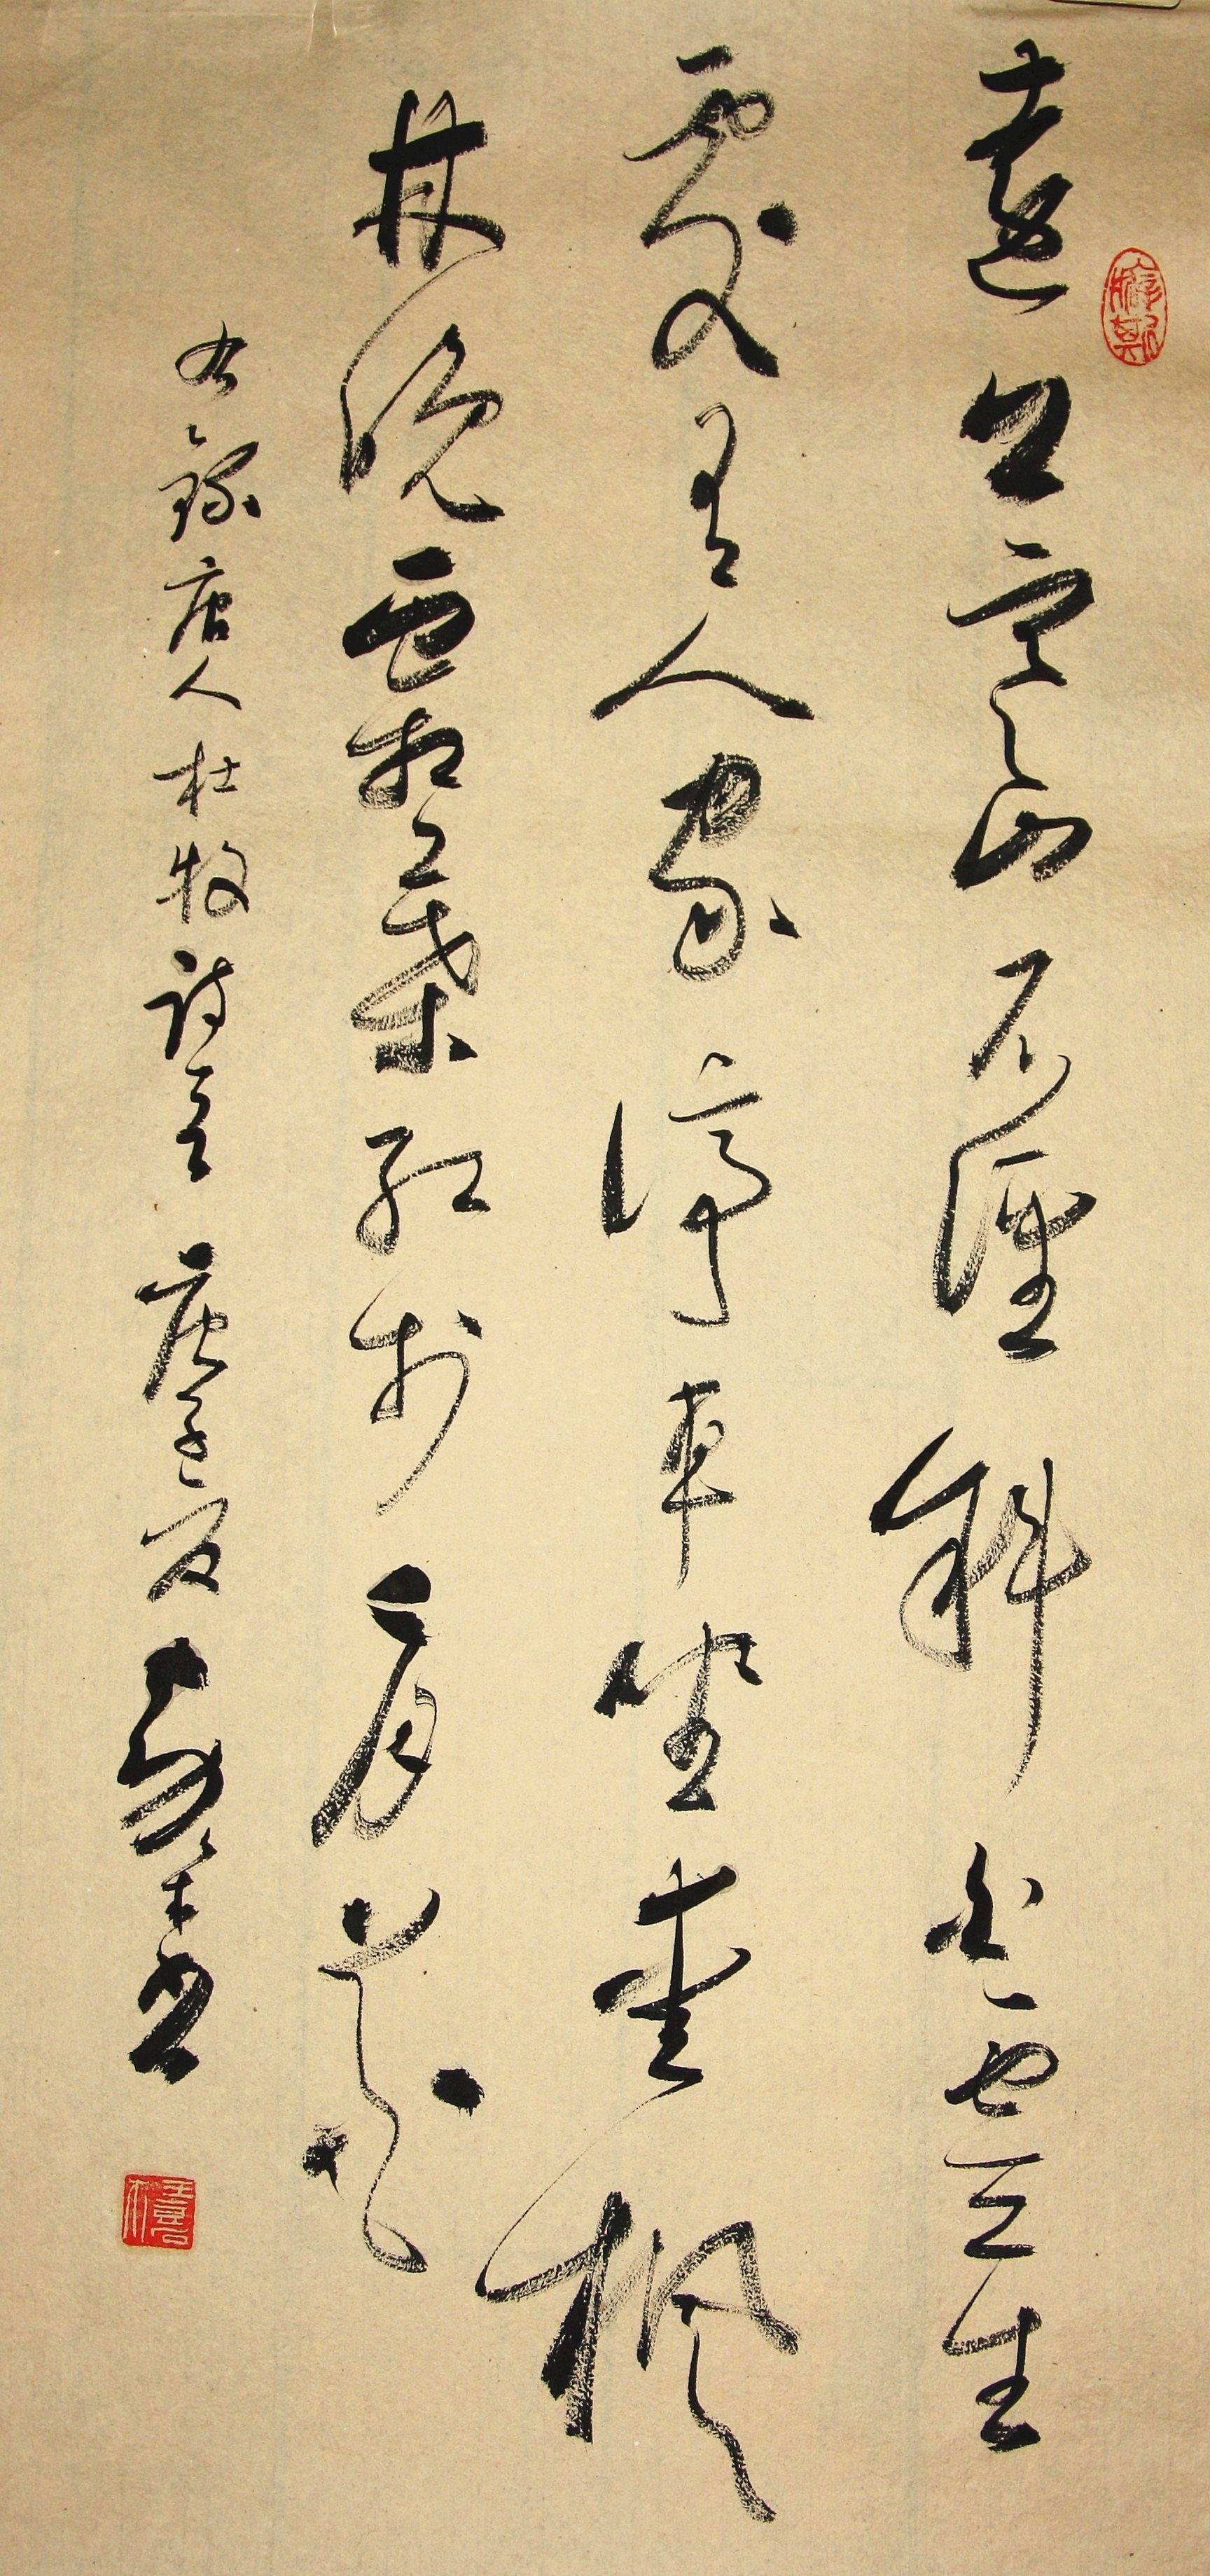 遠上寒山石徑斜白雲生
處有人家停車坐愛楓
林晚霜葉紅於二月花
右錄唐人杜牧詩 庚子夏 書